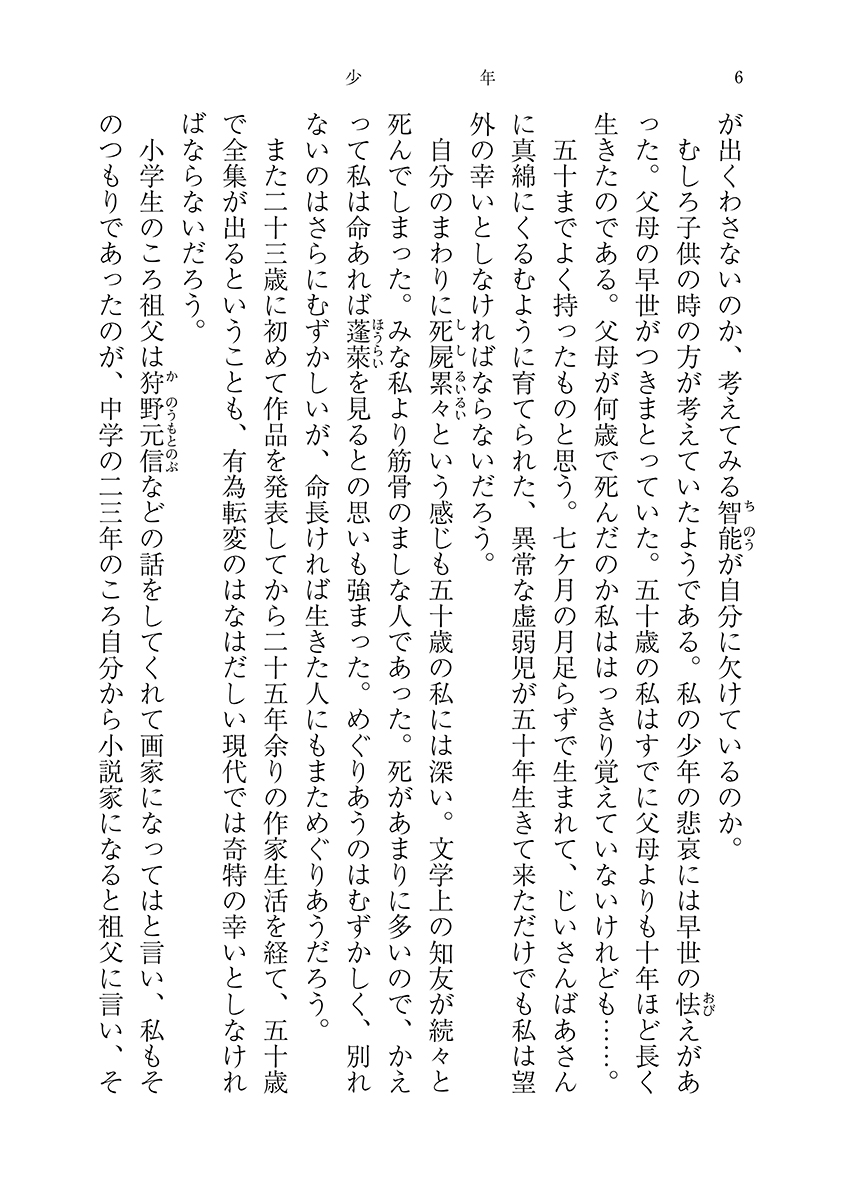 少年
6
が出くわさないのか、考えてみる智能が自分に欠けているのか。
むしろ子供の時の方が考えていたようである。私の少年の悲哀には早世の怯えがあ
った。父母の早世がつきまとっていた。五十歳の私はすでに父母よりも十年ほど長く
生きたのである。父母が何歳で死んだのか私ははっきり覚えていないけれども……。
五十までよく持ったものと思う。七ケ月の月足らずで生まれて、じいさんばあさん
に真綿にくるむように育てられた、異常な虚弱児が五十年生きて来ただけでも私は望
外の幸いとしなければならないだろう。
自分のまわりに死屍累々という感じも五十歳の私には深い。文学上の知友が続々と
死んでしまった。みな私より筋骨のましな人であった。死があまりに多いので、かえ
って私は命あれば蓬萊を見るとの思いも強まった。めぐりあうのはむずかしく、別れ
ないのはさらにむずかしいが、命長ければ生きた人にもまためぐりあうだろう。
また二十三歳に初めて作品を発表してから二十五年余りの作家生活を経て、五十歳
で全集が出るということも、有為転変のはなはだしい現代では奇特の幸いとしなけれ
ばならないだろう。
小学生のころ祖父は狩野元信などの話をしてくれて画家になってはと言い、私もそ
のつもりであったのが、中学の二三年のころ自分から小説家になると祖父に言い、そ